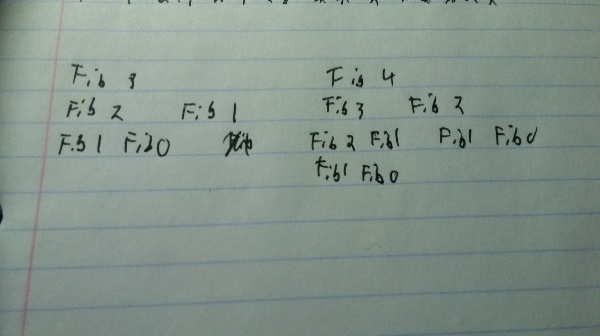 Fib 3 Fib 4
Fib 2 Fib 1 Fib 3 Fib 2
Fib 1 Fib 0 Fib 2 Fib 1 Fib 1 Fib 0
Fib 1 Fib 0